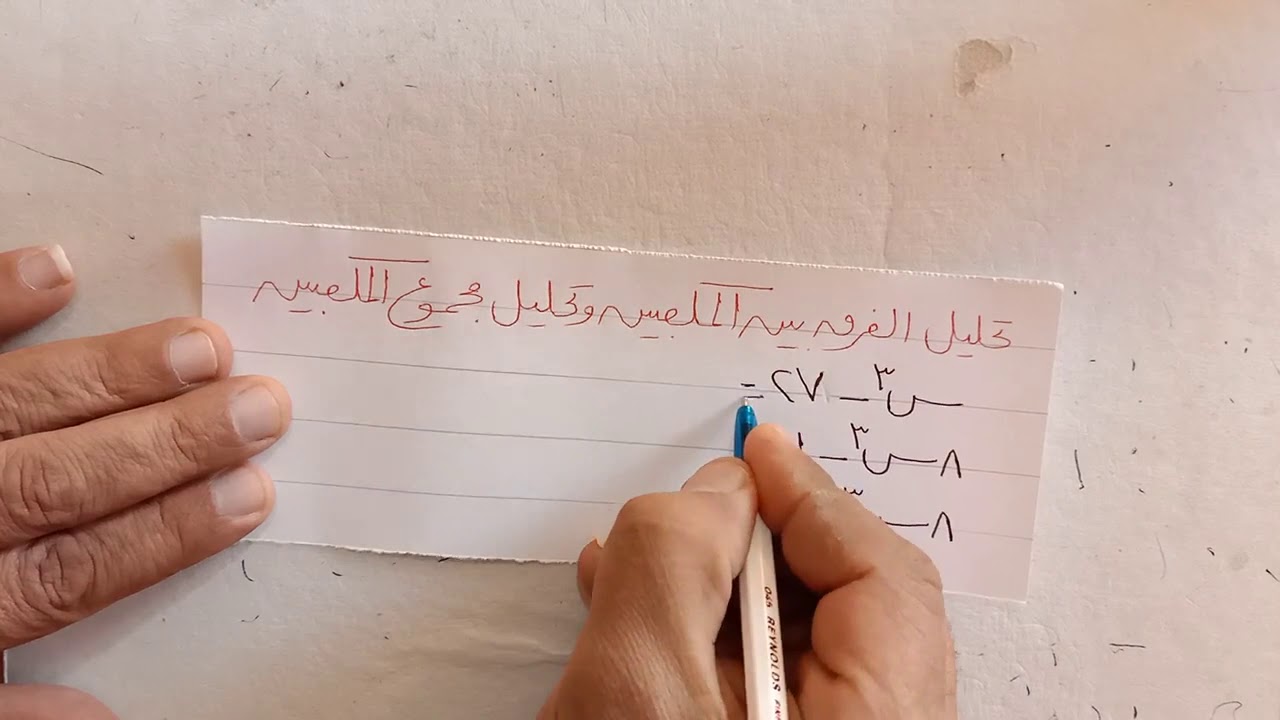 تحليل الفرق بين المكعبين وتحليل مجموع المكعبين
س٣ - ٢٧ =
٨س٣ - ١
٨ ٣
045 REYNOLDS